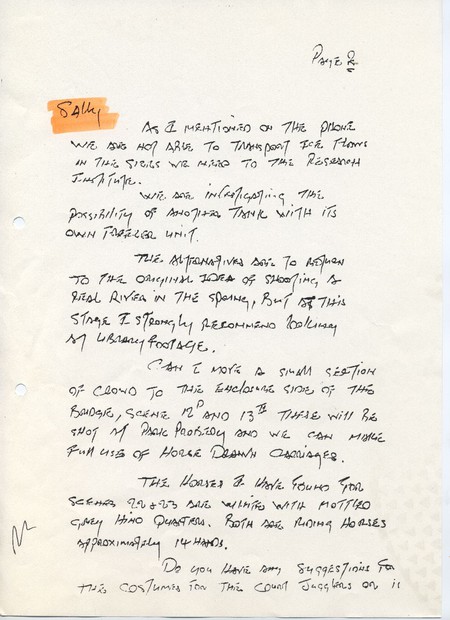 PAGE 2
SALLY
AS I MENTIONED ON THE PHONE
WE ARE NOT ABLE TO TRANSPORT ICE FLOWS
IN THE SIZES WE NEED TO THE RESEARCH
INSTITUTE.
WE ARE INVESTIGATING THE
POSSIBILITY OF ANOTHER TANK WITH ITS
OWN FREEZER UNIT.
THE ALTERNATIVES ARE TO RETURN
TO THE ORIGINAL IDEA OF SHOOTING A
REAL RIVER IN THE SPRING, BUT AT THIS
STAGE I STRONGLY RECOMMEND LOOKING
AT LIBRARY FOOTAGE.
CAN I MOVE A SMALL SECTION
OF CROWD TO THE ENCLOSURE SIDE OF THE
BRIDGE, SCENE AND 13 THESE WILL BE
SHOT AT PARK PROPERTY AND WE CAN MAKE
FULL USE OF HORSE DRAWN CARRIAGES.
THE HORSES I HAVE FOUND FOR
SCENES 22 & 23 ARE WHITES WITH MOTTLED
GREY HIND QUARTERS. BOTH ARE RIDING HORSES
APPROXIMATELY 14 HANDS.
DO YOU HAVE ANY SUGGESTIONS FOR
THE COSTUMES FOR THE COURT JUGGLERS OR IS